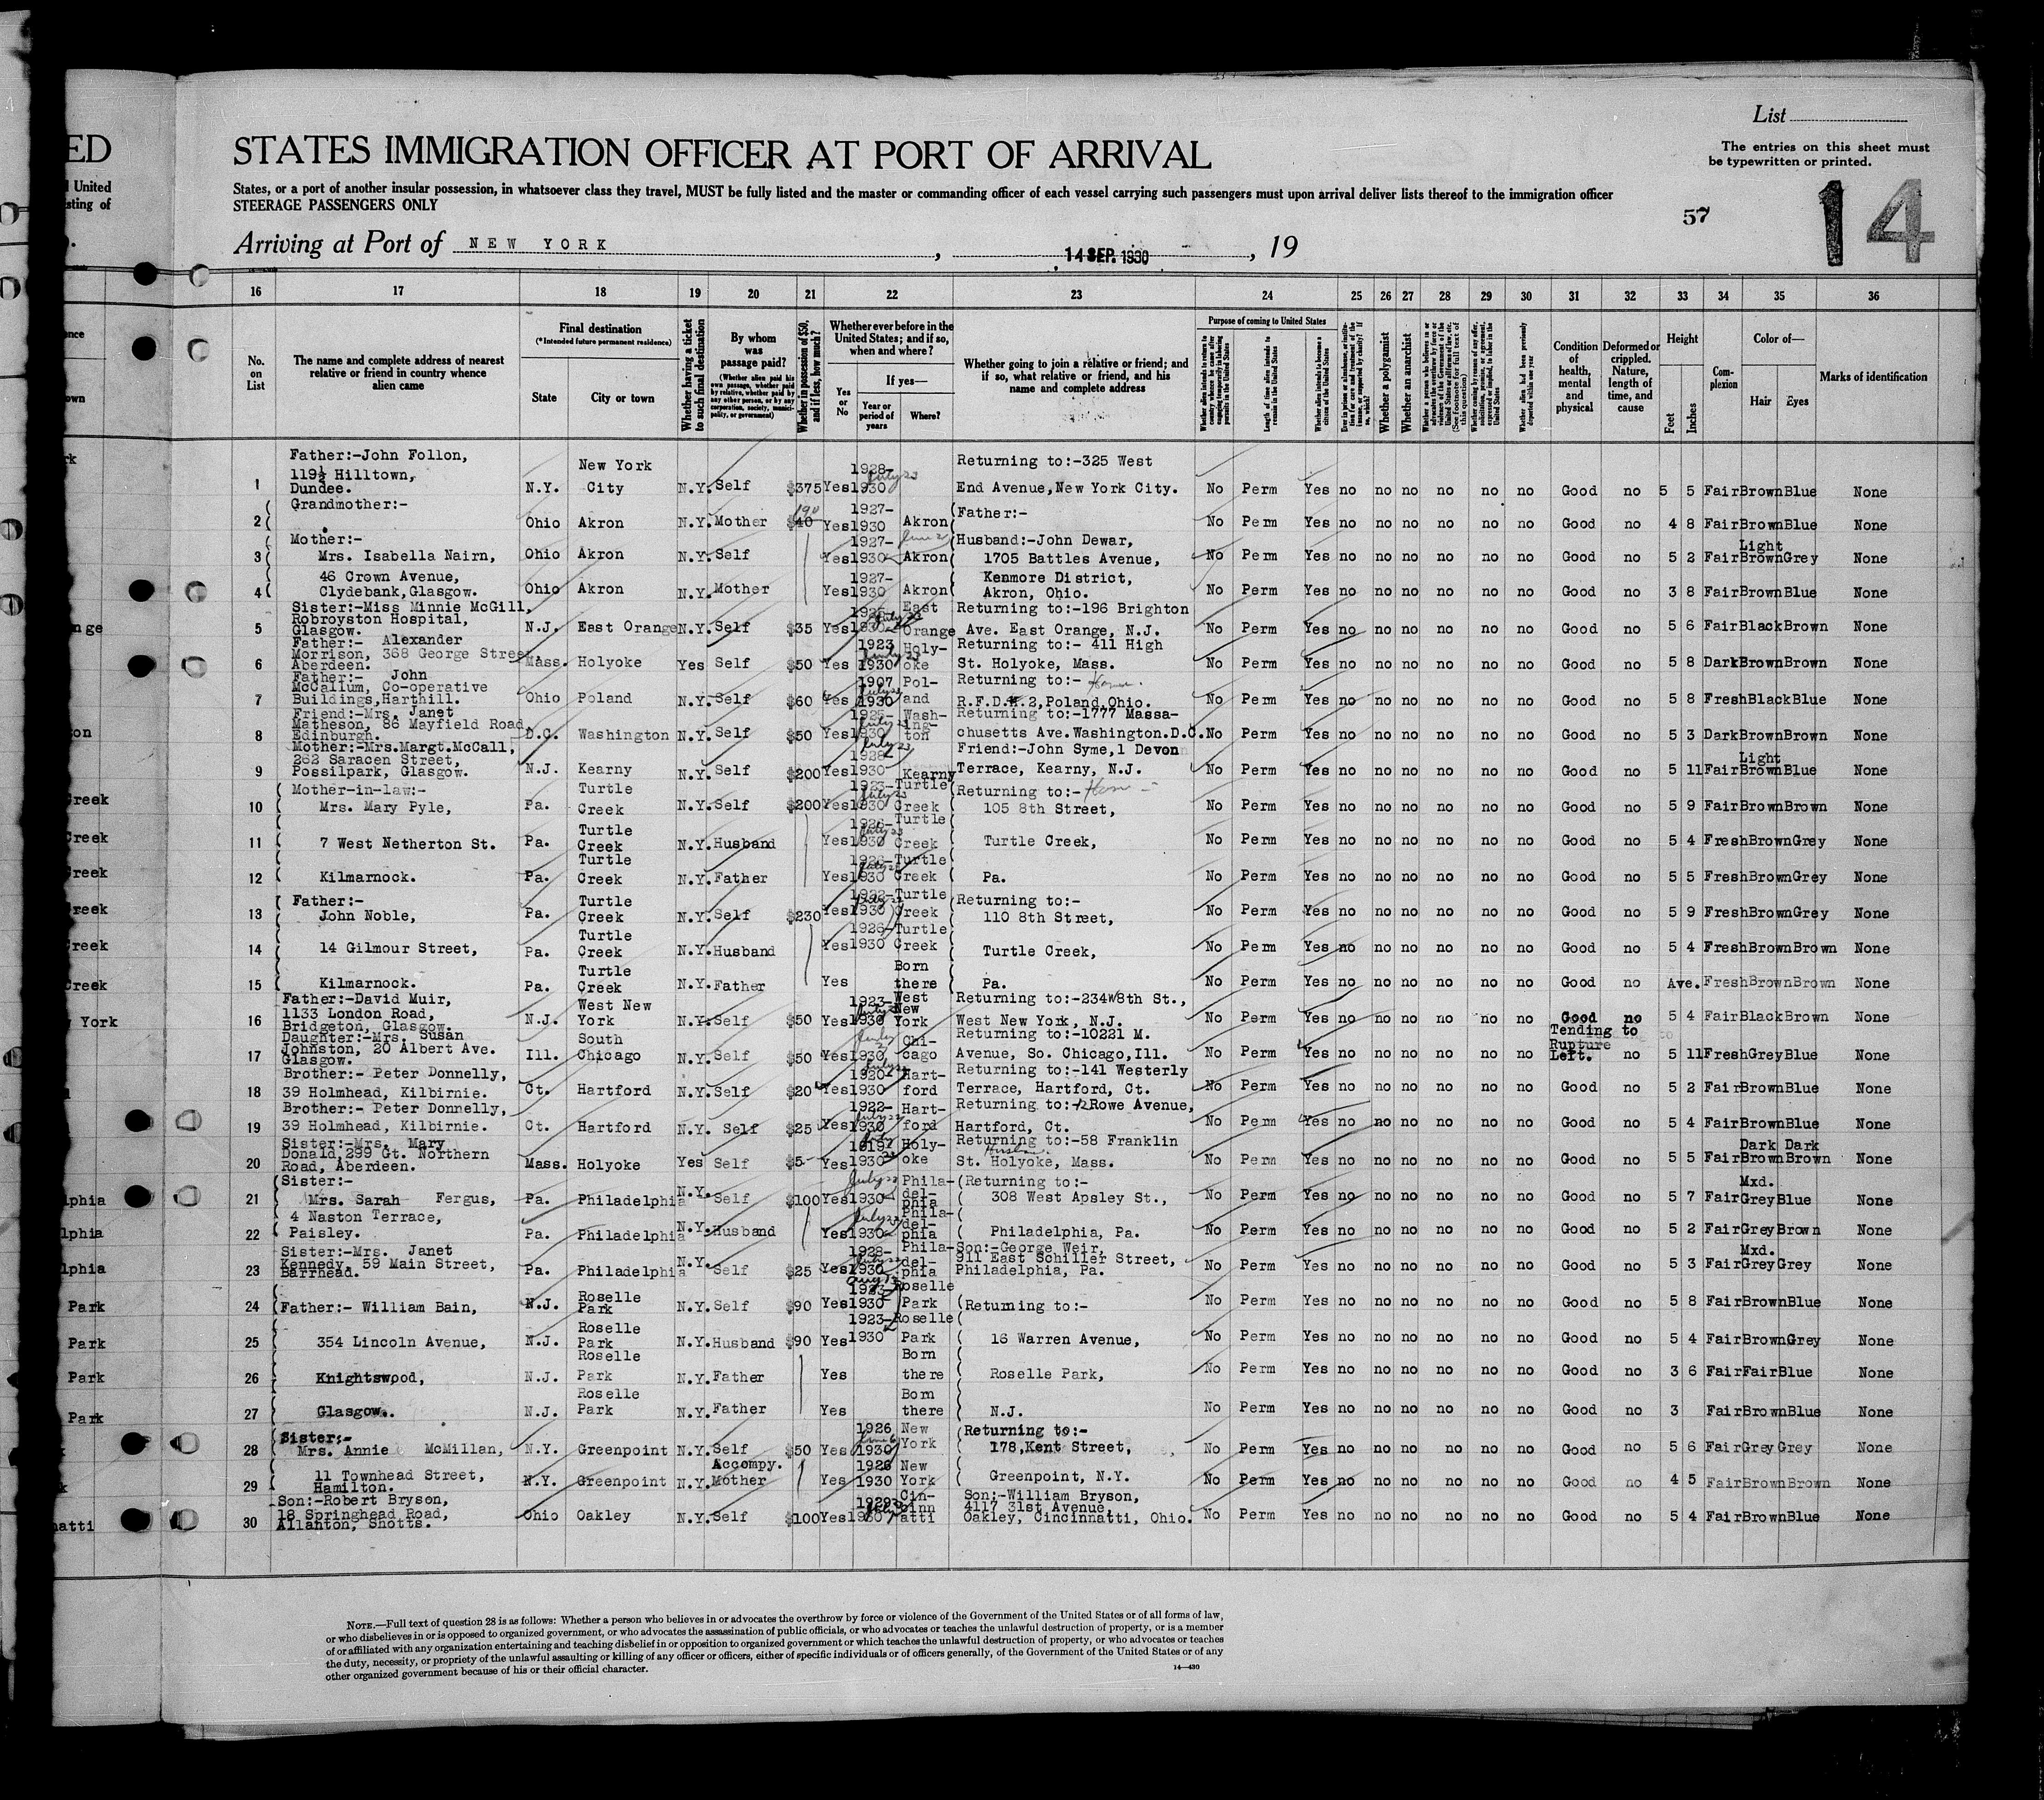 ED
United
sting of
List
STATES IMMIGRATION OFFICER AT PORT OF ARRIVAL
The entries on this sheet must
be typewritten or printed.
States, or a port of another insular possession, in whatsoever class they travel, MUST be fully listed and the master or commanding officer of each vessel carrying such passengers must upon arrival deliver lists thereof to the immigration officer
STEERAGE PASSENGERS ONLY
57
14
Arriving at Port of NEW YORK, 14 SEP. 1930, 19
16 17 18 19 20 21 22 23 24 25 26 27 28 29 30 31 32 33 34 35 36
No. on List
The name and complete address of nearest relative or friend in country whence alien came
Final destination
(*Intended future permanent residence)
State
City or town
Whether having a ticket to such final destination
By whom was passage paid?
(Whether alien paid his own passage, whether paid by relative, whether paid by any other person, or by any corporation, society, municipality, or government)
Whether in possession of $50, and if less, how much?
Whether ever before in the United States; and if so, when and where?
Yes or No
If yes—
Year or period of years
Where?
Whether going to join a relative or friend; and if so, what relative or friend, and his name and complete address
Purpose of coming to United States
Length of time alien intends to remain in the United States
Whether alien intends to become a citizen of the United States
Whether a polygamist
Whether an anarchist
Condition of health, mental and physical
Deformed or crippled. Nature, length of time, and cause
Height
Feet
Inches
Complexion
Color of—
Hair
Eyes
Marks of identification
1 Father:-John Follon, 119½ Hilltown, Dundee. N.Y. New York City N.Y. Self $375 Yes 1928-1930 Returning to:-325 West End Avenue, New York City. No Perm Yes no no no no no no Good no 5 5 Fair Brown Blue None
2 Grandmother:- Ohio Akron N.Y. Mother $40 190 Yes 1927-1930 Akron Father:- No Perm Yes no no no no no no Good no 4 8 Fair Brown Blue None
3 Mother:- Mrs. Isabella Nairn, Ohio Akron N.Y. Self Yes 1927-1930 Akron Husband:-John Dewar, 1705 Battles Avenue, No Perm Yes no no no no no no Good no 5 2 Fair Light Brown Grey None
4 46 Crown Avenue, Clydebank, Glasgow. Ohio Akron N.Y. Mother Yes 1927-1930 Akron Kenmore District, Akron, Ohio. No Perm Yes no no no no no no Good no 3 8 Fair Brown Blue None
5 Sister:-Miss Minnie McGill, Robroyston Hospital, Glasgow. N.J. East Orange N.Y. Self $35 Yes 1930 East Orange Returning to:-196 Brighton Ave. East Orange, N.J. No Perm Yes no no no no no no Good no 5 6 Fair Black Brown None
6 Father:- Alexander Morrison, 368 George Street, Aberdeen. Mass. Holyoke Yes Self $50 Yes 1923 1930 Holyoke Returning to:- 411 High St. Holyoke, Mass. No Perm Yes no no no no no no Good no 5 8 Dark Brown Brown None
7 Father:- John McCallum, Co-operative Buildings, Harthill. Ohio Poland N.Y. Self $60 Yes 1907 1930 Poland Returning to:- R.F.D. 2, Poland, Ohio. No Perm Yes no no no no no no Good no 5 8 Fresh Black Blue None
8 Friend:-Mrs. Janet Matheson, 86 Mayfield Road, Edinburgh. D.C. Washington N.Y. Self $50 Yes 1930 Washington Returning to:-1777 Massachusetts Ave. Washington. D.C. No Perm Yes no no no no no no Good no 5 3 Dark Brown Brown None
9 Mother:-Mrs. Margt. McCall, 262 Saracen Street, Possilpark, Glasgow. N.J. Kearny N.Y. Self $200 Yes 1928 1930 Kearny Friend:-John Syme, 1 Devon Terrace, Kearny, N.J. No Perm Yes no no no no no no Good no 5 11 Fair Light Brown Blue None
10 Mother-in-law:- Mrs. Mary Pyle, Pa. Turtle Creek N.Y. Self $200 Yes 1923-1930 Turtle Creek Returning to:- 105 8th Street, No Perm Yes no no no no no no Good no 5 9 Fair Brown Brown None
11 7 West Netherton St. Pa. Turtle Creek N.Y. Husband Yes 1926-1930 Turtle Creek Turtle Creek, No Perm Yes no no no no no no Good no 5 4 Fresh Brown Grey None
12 Kilmarnock. Pa. Turtle Creek N.Y. Father Yes 1930 Turtle Creek Pa. No Perm Yes no no no no no no Good no 5 5 Fresh Brown Grey None
13 Father:- John Noble, Pa. Turtle Creek N.Y. Self $230 Yes 1930 Turtle Creek Returning to:- 110 8th Street, No Perm Yes no no no no no no Good no 5 9 Fresh Brown Grey None
14 14 Gilmour Street, Pa. Turtle Creek N.Y. Husband Yes 1926-1930 Turtle Creek Turtle Creek, No Perm Yes no no no no no no Good no 5 4 Fresh Brown Brown None
15 Kilmarnock. Pa. Turtle Creek N.Y. Father Yes Born there Pa. No Perm Yes no no no no no no Good no Ave. Fresh Brown Brown None
16 Father:-David Muir, 1133 London Road, Bridgeton, Glasgow. N.J. West New York N.Y. Self $50 Yes 1923-1930 West New York Returning to:-234W8th St., West New York, N.J. No Perm Yes no no no no no no Good no 5 4 Fair Black Brown None
17 Daughter:-Mrs. Susan Johnston, 20 Albert Ave. Glasgow. Ill. South Chicago N.Y. Self $50 Yes 1930 Chicago Returning to:-10221 M. Avenue, So. Chicago, Ill. No Perm Yes no no no no no no Tending to Rupture Left. no 5 11 Fresh Grey Blue None
18 Brother:- Peter Donnelly, 39 Holmhead, Kilbirnie. Ct. Hartford N.Y. Self $20 Yes 1920 1930 Hartford Returning to:-141 Westerly Terrace, Hartford, Ct. No Perm Yes no no no no no no Good no 5 2 Fair Brown Blue None
19 Brother:- Peter Donnelly, 39 Holmhead, Kilbirnie. Ct. Hartford N.Y. Self $25 Yes 1922-1930 Hartford Returning to:-12 Rowe Avenue, Hartford, Ct. No Perm Yes no no no no no no Good no 5 4 Fair Brown Blue None
20 Sister:-Mrs. Mary Donald, 299 Gt. Northern Road, Aberdeen. Mass. Holyoke Yes Self $5 Yes 1930 Holyoke Returning to:-58 Franklin St. Holyoke, Mass. No Perm Yes no no no no no no Good no 5 5 Fair Dark Brown Dark Brown None
21 Sister:- Mrs. Sarah Fergus, Pa. Philadelphia N.Y. Self $100 Yes 1930 Philadelphia Returning to:- 308 West Apsley St., No Perm Yes no no no no no no Good no 5 7 Fair Mxd. Grey Blue None
22 4 Naston Terrace, Paisley. Pa. Philadelphia N.Y. Husband Yes 1930 Philadelphia Philadelphia, Pa. No Perm Yes no no no no no no Good no 5 2 Fair Grey Brown None
23 Sister:-Mrs. Janet Kennedy, 59 Main Street, Barrhead. Pa. Philadelphia N.Y. Self $25 Yes 1928-1930 Philadelphia Son:-George Weir, 911 East Schiller Street, Philadelphia, Pa. No Perm Yes no no no no no no Good no 5 3 Fair Mxd. Grey Grey None
24 Father:- William Bain, N.J. Roselle Park N.Y. Self $90 Yes 1923 1930 Roselle Park Returning to:- No Perm Yes no no no no no no Good no 5 8 Fair Brown Blue None
25 354 Lincoln Avenue, N.J. Roselle Park N.Y. Husband $90 Yes 1923-1930 Roselle Park 16 Warren Avenue, No Perm Yes no no no no no no Good no 5 4 Fair Brown Grey None
26 Knightswood, N.J. Roselle Park N.Y. Father Yes Born there Roselle Park, No Perm Yes no no no no no no Good no 3 6 Fair Fair Blue None
27 Glasgow. N.J. Roselle Park N.Y. Father Yes Born there N.J. No Perm Yes no no no no no no Good no 3 Fair Brown Blue None
28 Sister:- Mrs. Annie McMillan, N.Y. Greenpoint N.Y. Self $50 Yes 1926 1930 New York Returning to:- 178, Kent Street, No Perm Yes no no no no no no Good no 5 6 Fair Grey Grey None
29 11 Townhead Street, Hamilton. N.Y. Greenpoint N.Y. Accompy. Mother Yes 1926 1930 New York Greenpoint, N.Y. No Perm Yes no no no no no no Good no 4 5 Fair Brown Brown None
30 Son:-Robert Bryson, 18 Springhead Road, Allanton, Shotts. Ohio Oakley N.Y. Self $100 Yes 1929 1930 Cincinnatti Son:-William Bryson, 4117 31st Avenue, Oakley, Cincinnatti, Ohio. No Perm Yes no no no no no no Good no 5 4 Fair Brown Blue None
NOTE.—Full text of question 28 is as follows: Whether a person who believes in or advocates the overthrow by force or violence of the Government of the United States or of all forms of law,
or who disbelieves in or is opposed to organized government, or who advocates the assassination of public officials, or who advocates or teaches the unlawful destruction of property, or is a member
of or affiliated with any organization entertaining and teaching disbelief in or opposition to organized government or which teaches the unlawful destruction of property, or who advocates or teaches
the duty, necessity, or propriety of the unlawful assaulting or killing of any officer or officers, either of specific individuals or of officers generally, of the Government of the United States or of any
other organized government because of his or their official character.
14—430